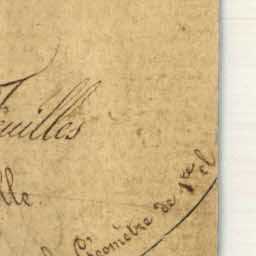 Feuilles
lle
Géomètre de 1re cl